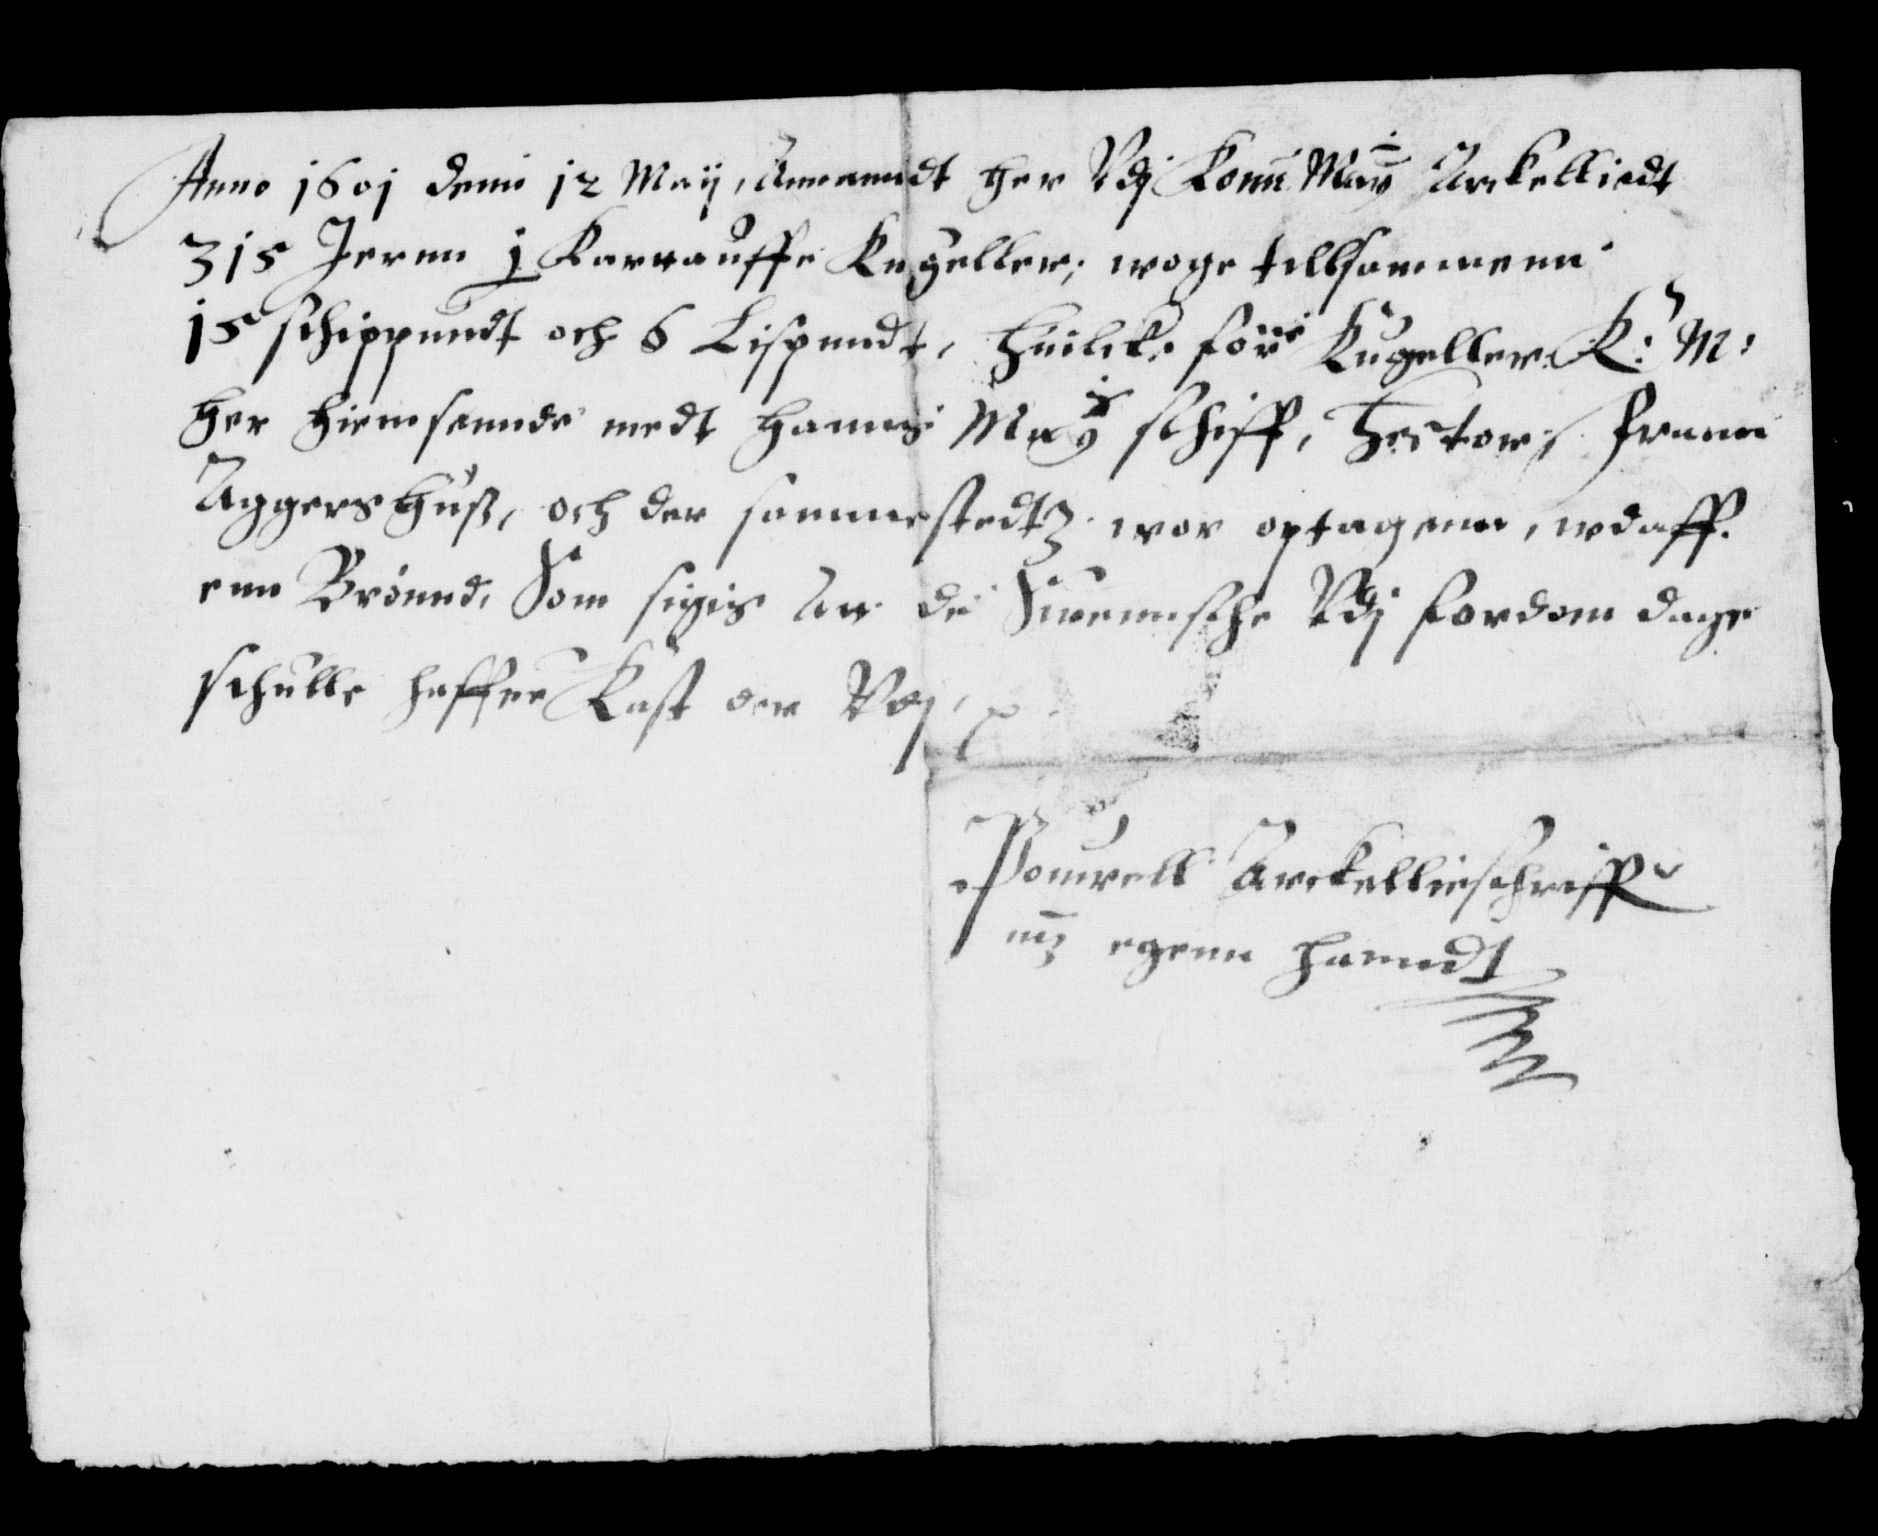 Anno 1601 denn 12 Maij, Annamidt her Vdj Konn: May: Arckelliedt
315 Jernn j Kartauffe Kugeller, woge tillsammenn
15 schippundt och 6 Lispundt, Huilcke förre Kugeller K: M:
her hiemsennde medt Hanns: May: schiff, Hector, frann
Aggershuß, och der sammestedtz wor optagenn, wdaff
enn Brönnd, Som sigis Att de Suennsche Vdj fordom dage
schulle haffue Kast der Vdj,
Pouell Arckellieschriffr
mz egenn Handt